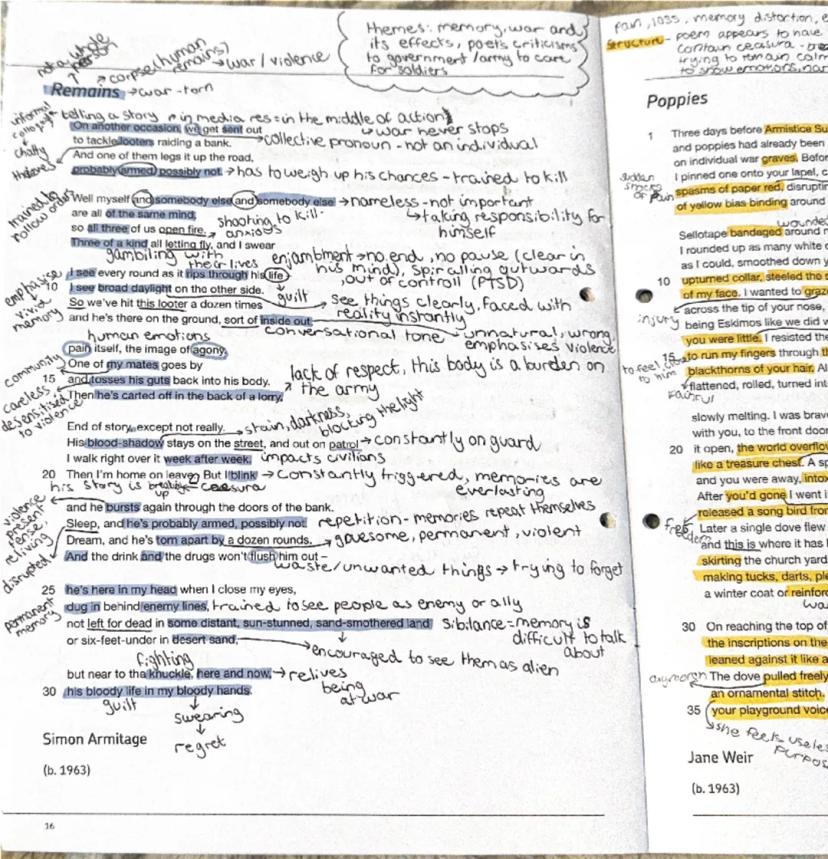 themes: memory, war and
its effects, poet's criticisms
to government/army to care
for soldiers
not a whole
person
corpse/human
remains)
→ war / violence
Remains → war-torn
telling a story
in media res = in the middle of action)
informal
chatty
On another occasion, we get sent out
↳ war never stops
to tackle looters raiding a bank.
→ collective pronoun - not an individual
thieves
And one of them legs it up the road,
probably armed, possibly not.
→ has to weigh up his chances - trained to kill
trained to
follow orders
Well myself and somebody else and somebody else
→ nameless - not important
are all of the same mind,
↳ taking responsibility for
himself
shooting to kill.
so all three of us open fire.
anxious
Three of a kind all letting fly, and I swear
gambiling with
their lives
enjambment → no end, no pause (clear in
his mind), spiralling outwards
, out of controll (PTSD)
I see every round as it rips through his life –
emphasise
vivid
memory
10 I see broad daylight on the other side.
↳ guilt
So we've hit this looter a dozen times
→ see things clearly, faced with
reality instantly
and he's there on the ground, sort of inside out,
conversational tone
unnatural, wrong
emphasises violence
human emotions
pain itself, the image of agony.
community
One of my mates goes by
15 and tosses his guts back into his body.
lack of respect, this body is a burden on
the army
careless,
desensitised
to violence
Then he's carted off in the back of a lorry.
End of story, except not really.
→ stain, darkness,
blocking the light
His blood-shadow stays on the street, and out on patrol
→ constantly on guard
I walk right over it week after week.
impacts civilians
20 Then I'm home on leave. But I blink
→ Constantly triggered, memories are
everlasting
his story is breaking
up
caesura
and he bursts again through the doors of the bank.
violence
present
tense,
reliving
Sleep, and he's probably armed, possibly not.
repetition - memories repeat themselves
disrupted
Dream, and he's torn apart by a dozen rounds.
→ gruesome, permanent, violent
And the drink and the drugs won't flush him out –
waste/unwanted things → trying to forget
25 he's here in my head when I close my eyes,
dug in behind enemy lines,
trained to see people as enemy or ally
permanent
memory
not left for dead in some distant, sun-stunned, sand-smothered land
sibilance = memory is
difficult to talk
about
or six-feet-under in desert sand,
→ encouraged to see them as alien
fighting
but near to the knuckle, here and now,
→ relives
being
at war
30 his bloody life in my bloody hands.
guilt
swearing
↓
regret
Simon Armitage
(b. 1963)
16
pain, loss, memory distortion, e
Structure - poem appears to have
contain ceasura -
trying to remain calm
to show emotions,
Poppies
1 Three days before Armistice Su
and poppies had already been
on individual war graves. Befor
I pinned one onto your lapel, c
sudden
of pain
spasms of paper red, disrupti
of yellow bias binding around
wounded
Sellotape bandaged around m
I rounded up as many white c
as I could, smoothed down y
10 upturned collar, steeled the s
of my face. I wanted to graz
across the tip of your nose,
injury
being Eskimos like we did w
you were little. I resisted the
15 to run my fingers through th
to feel close
to him
blackthorns of your hair. Al
flattened, rolled, turned int
slowly melting. I was brav
with you, to the front door
20 it open, the world overflow
like a treasure chest. A sp
and you were away, intox
After you'd gone I went i
released a song bird from
freedom
Later a single dove flew
and this is where it has l
skirting the church yard
making tucks, darts, ple
a winter coat or reinforc
30 On reaching the top of
the inscriptions on the
leaned against it like a
The dove pulled freely
an ornamental stitch.
35 your playground voice
she feels useles
purpos
Jane Weir
(b. 1963)